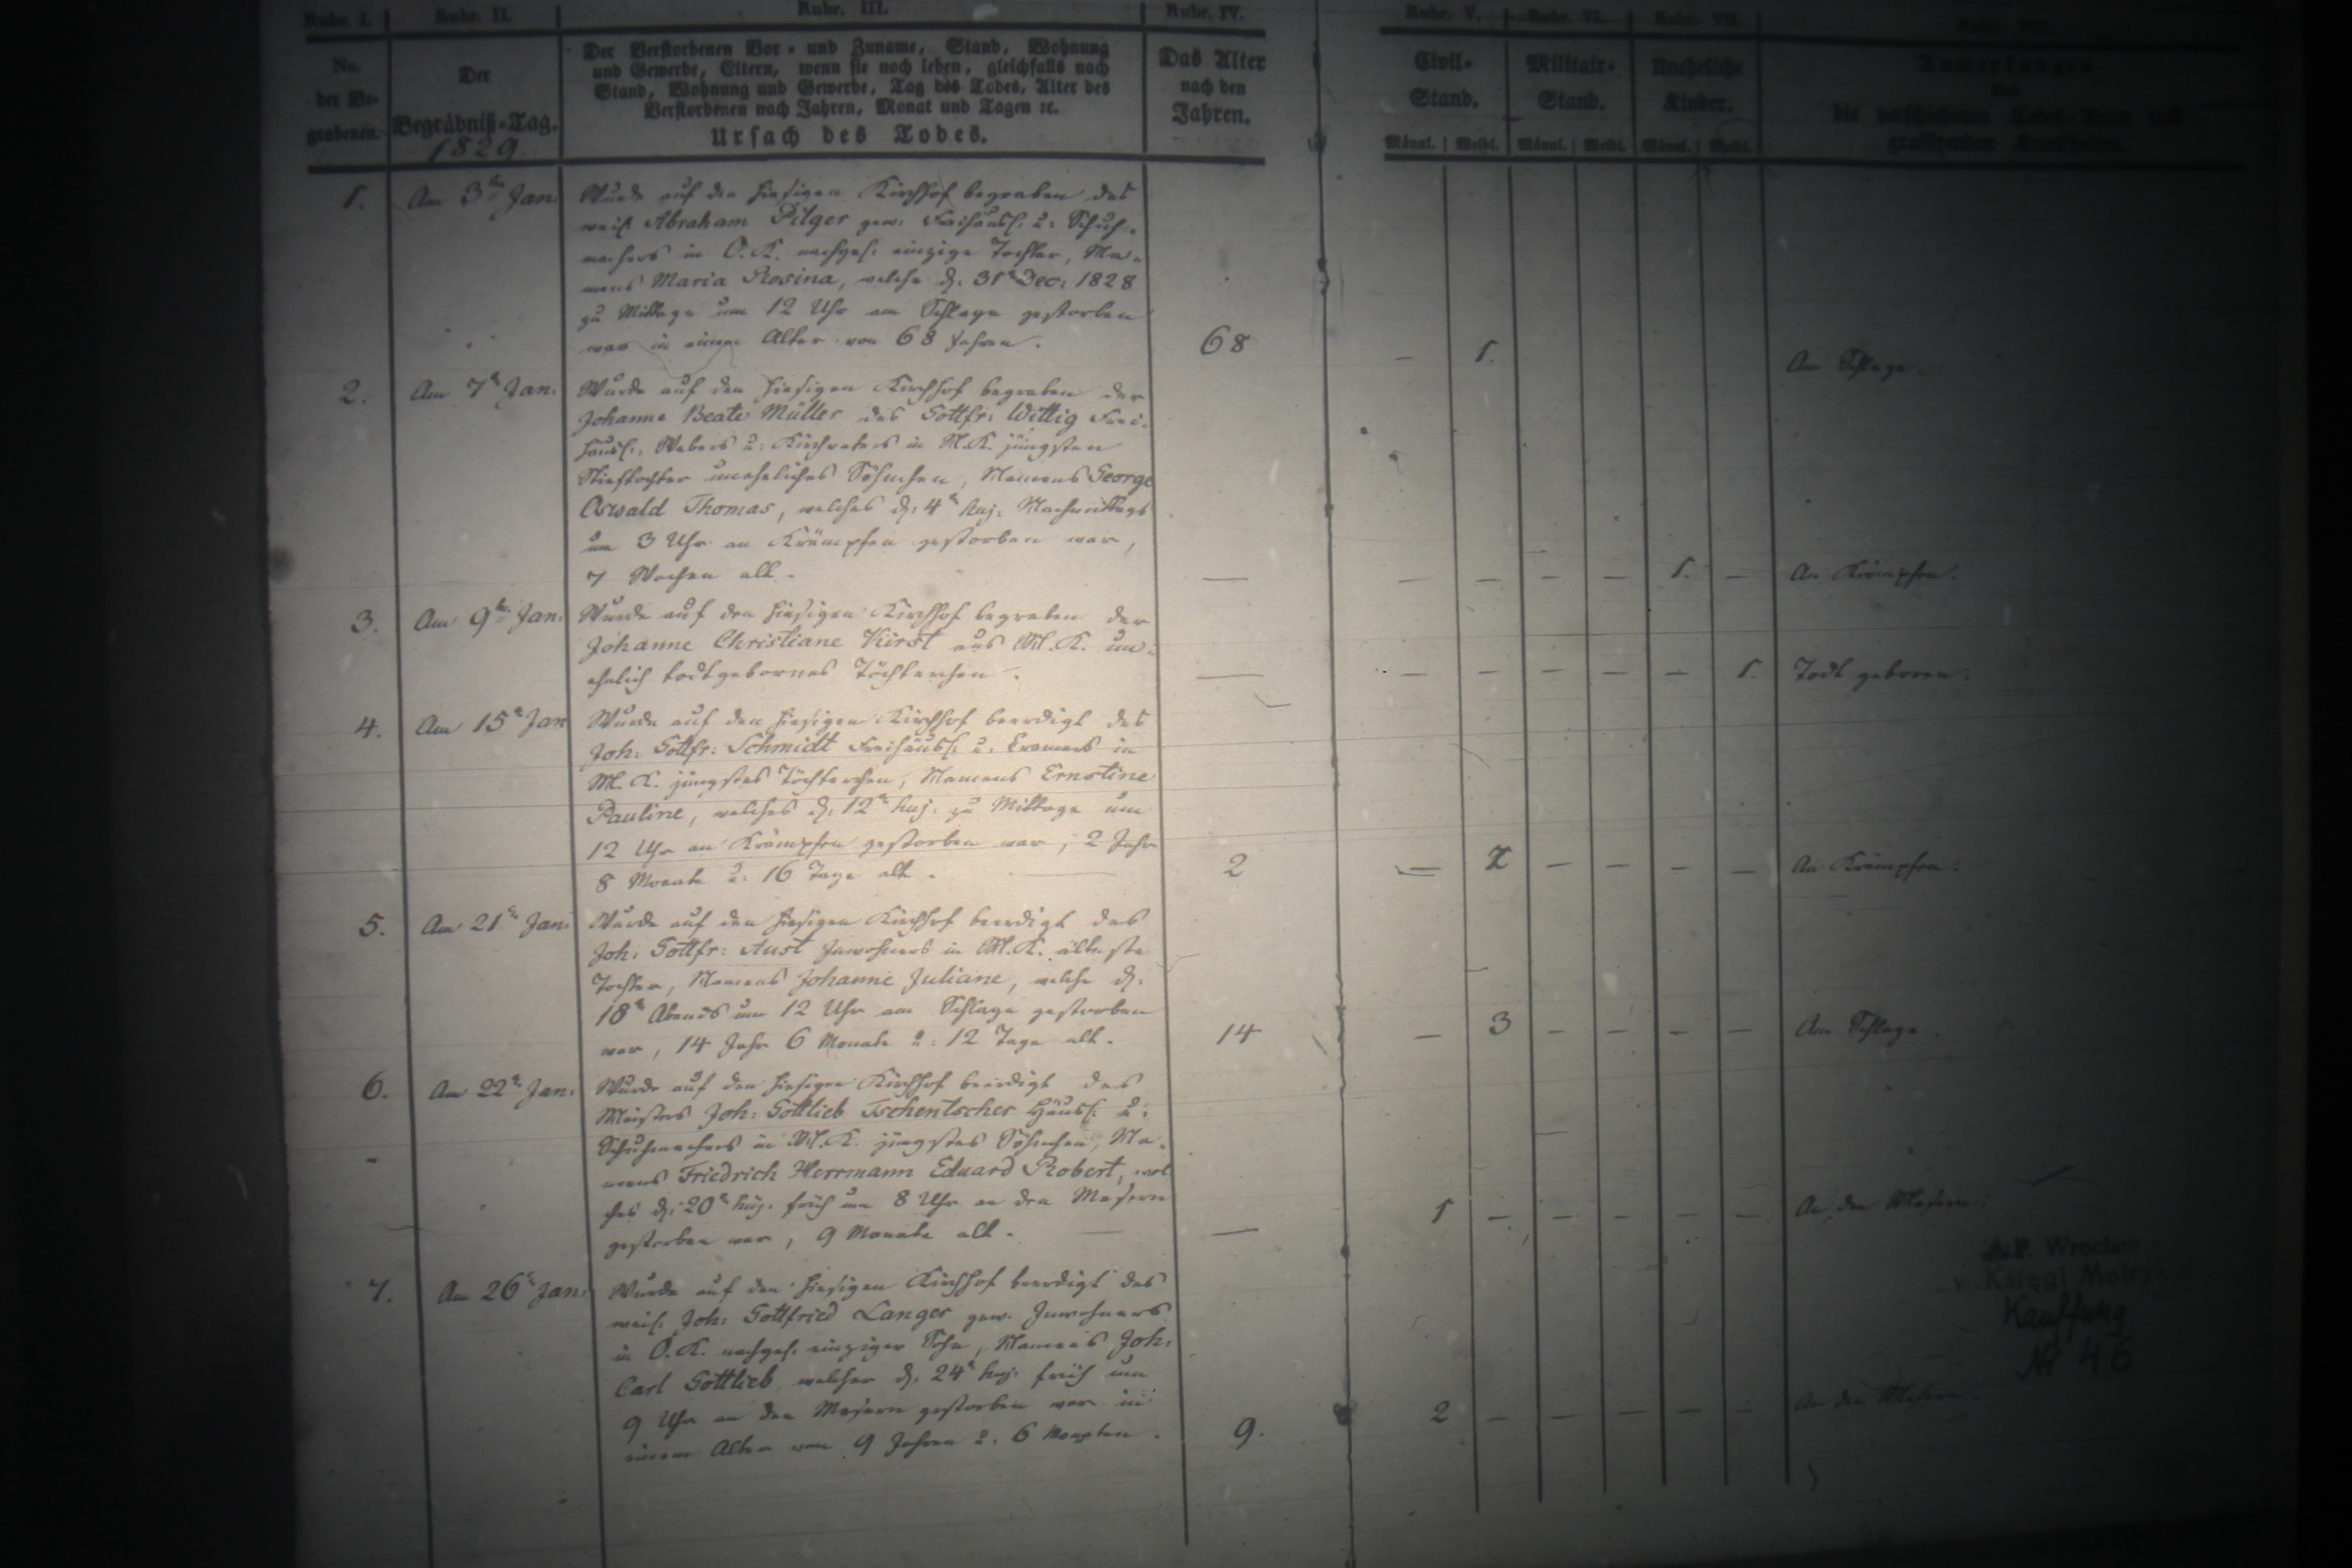 Rubr. I. Rubr. II. Rubr. III. Rubr. IV. Rubr. V. Rubr. VI. Rubr. VII. Rubr. VIII.
No. der Begrabenen.
Der Begräbniß-Tag.
1829.
Der Verstorbenen Vor- und Zuname, Stand, Wohnung
und Gewerbe, Eltern, wenn sie noch leben, gleichfalls nach
Stand, Wohnung und Gewerbe, Tag des Todes, Alter des
Verstorbenen nach Jahren, Monat und Tagen ꝛc.
Ursach des Todes.
Das Alter
nach den
Jahren.
Civil-
Stand.
Militair-
Stand.
Uneheliche
Kinder.
Anmerkungen
über
die verschiedenen Todes-Arten und
grassirenden Krankheiten.
Männl. Weibl. Männl. Weibl. Männl. Weibl.
1. Am 3ten Jan: Wurde auf den hiesigen Kirchhof begraben des
weil. Abraham Pilger gew: Freihäusl: u: Schuh-
machers in O.K. nachgel: einzige Tochter, Na-
mens Maria Rosina, welche d: 31t Dec: 1828
zu Mittage um 12 Uhr am Schlage gestorben
war in einem Alter von 68 Jahren. 68 — 1. Am Schlage.
2. Am 7t Jan: Wurde auf den hiesigen Kirchhof begraben der
Johanne Beate Müller des Gottfr: Wittig Frei-
häusl:, Webers u: Kirchvaters in M.K. jüngsten
Stieftochter uneheliches Söhnchen, Namens George
Oswald Thomas, welches d: 4t huj: Nachmittags
um 3 Uhr an Krämpfen gestorben war,
7 Wochen alt. — — — — — 1. — An Krämpfen.
3. Am 9ten Jan: Wurde auf den hiesigen Kirchhof begraben der
Johanne Christiane Kürst aus M.K. un-
ehelich todtgebornes Töchterchen. — — — — — — 1. Todt geboren.
4. Am 15t Jan Wurde auf den hiesigen Kirchhof beerdigt des
Joh: Gottfr: Schmidt Freihäusl: u: Cramers in
M.K. jüngstes Töchterchen, Namens Ernstine
Pauline, welches d: 12t huj: zu Mittage um
12 Uhr an Krämpfen gestorben war, 2 Jahr
8 Monate u: 16 Tage alt. 2 — 2 — — — — An Krämpfen.
5. Am 21t Jan: Wurde auf den hiesigen Kirchhof beerdigt des
Joh: Gottfr: Aust Inwohners in M.K. älteste
Tochter, Namens Johanne Juliane, welche d:
18t Abends um 12 Uhr am Schlage gestorben
war, 14 Jahr 6 Monate u: 12 Tage alt. 14 — 3 — — — — Am Schlage.
6. Am 22t Jan: Wurde auf den hiesigen Kirchhof beerdigt des
Meisters Joh: Gottlieb Tschentscher Häusl: u:
Schuhmachers in M.K. jüngstes Söhnchen, Na-
mens Friedrich Herrmann Eduard Robert, wel
ches d: 20t huj: früh um 8 Uhr an den Masern
gestorben war, 9 Monate alt. — 1 — — — — — An den Masern.
7. Am 26t Jan: Wurde auf den hiesigen Kirchhof beerdigt des
weil: Joh: Gottfried Langer gew. Inwohners
in O.K. nachgel: einziger Sohn, Namens Joh:
Carl Gottlieb welcher d: 24t huj: früh um
9 Uhr an den Masern gestorben war in
einem Alter von 9 Jahren u: 6 Monaten. 9. 2 — — — — — An den Masern.
A.P. Wrocław
Księgi Metrykalne
Kauffung
Nr 46